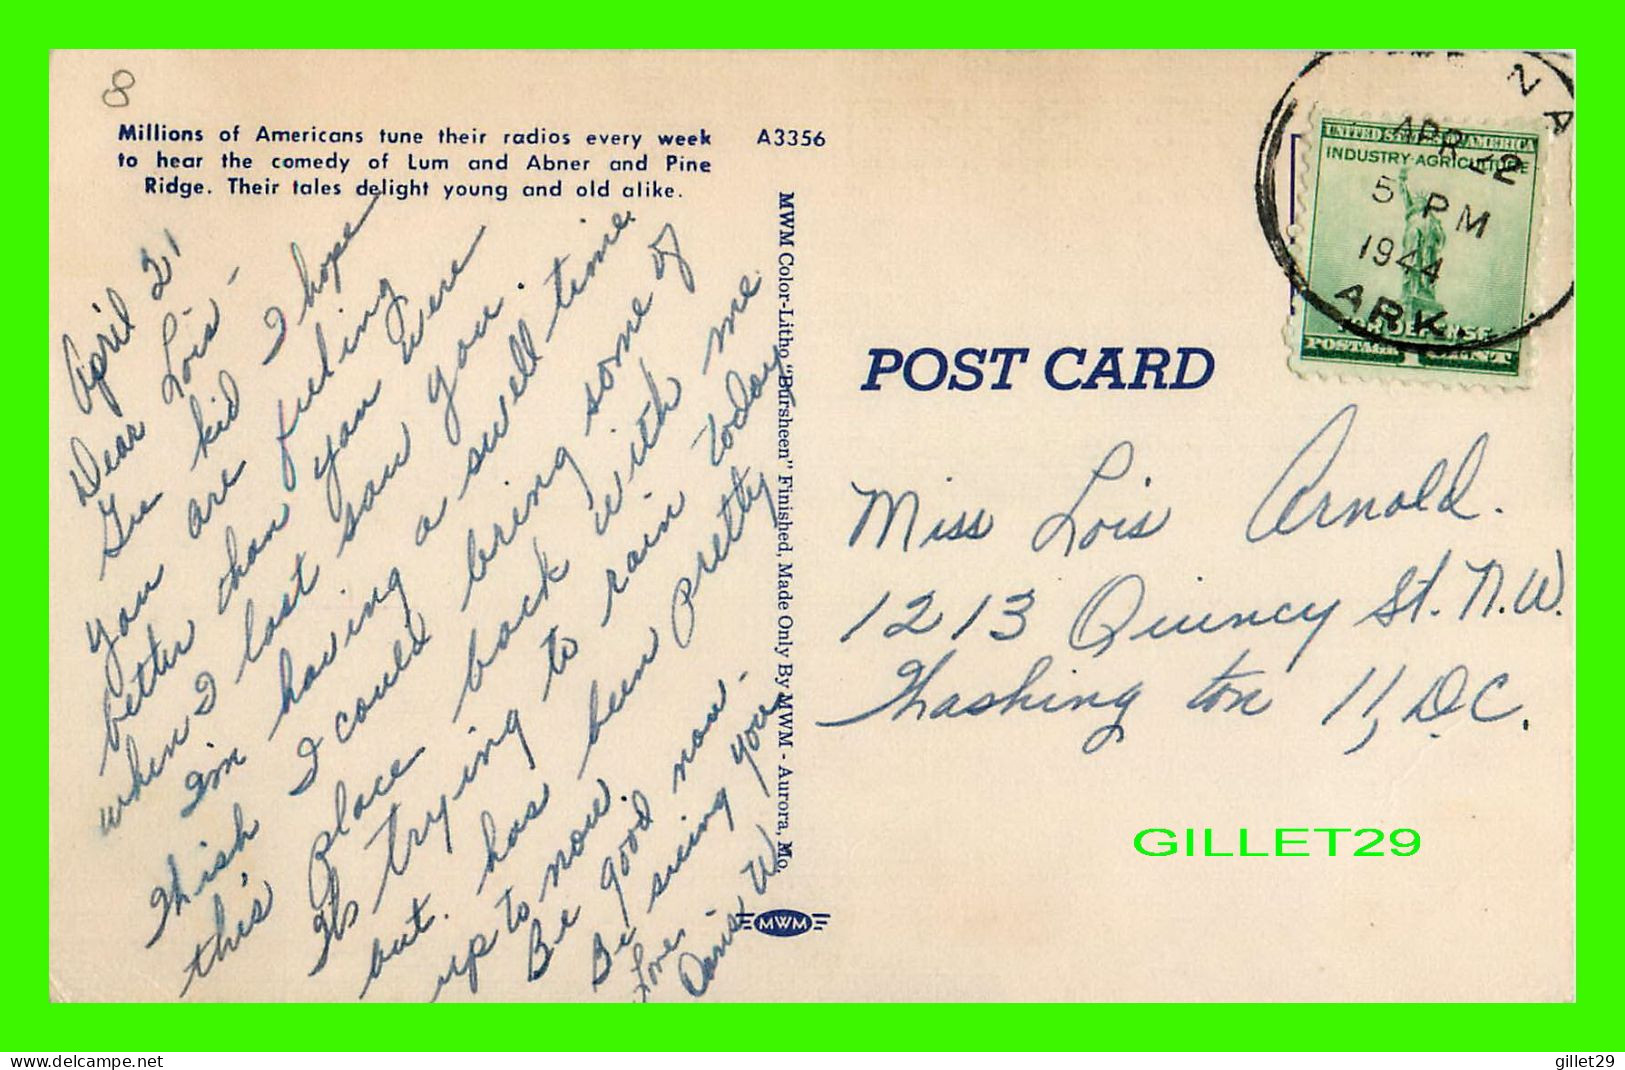 8
Millions of Americans tune their radios every week
to hear the comedy of Lum and Abner and Pine
Ridge. Their tales delight young and old alike.
A3356
April 21
Dear Lois -
Gee kid I hope
you are feeling
better than you were
when I last saw you.
I'm having a swell time
Wish I could bring some of
this place back with me
Its trying to rain today
but has been pretty
up to now.
Be good now -
Be seeing you
Love,
W
MWM Color-Litho "Bursheen" Finished, Made Only By MWM - Aurora, Mo.
MWM
POST CARD
NA
APR 22
5 PM
1944
ARK.
UNITED STATES OF AMERICA
INDUSTRY-AGRICULTURE
FOR DEFENSE
POSTAGE 1 CENT
Miss Lois Arnold.
1213 Quincy St. N.W.
Washington 11, D.C.
GILLET29
www.delcampe.net
gillet29